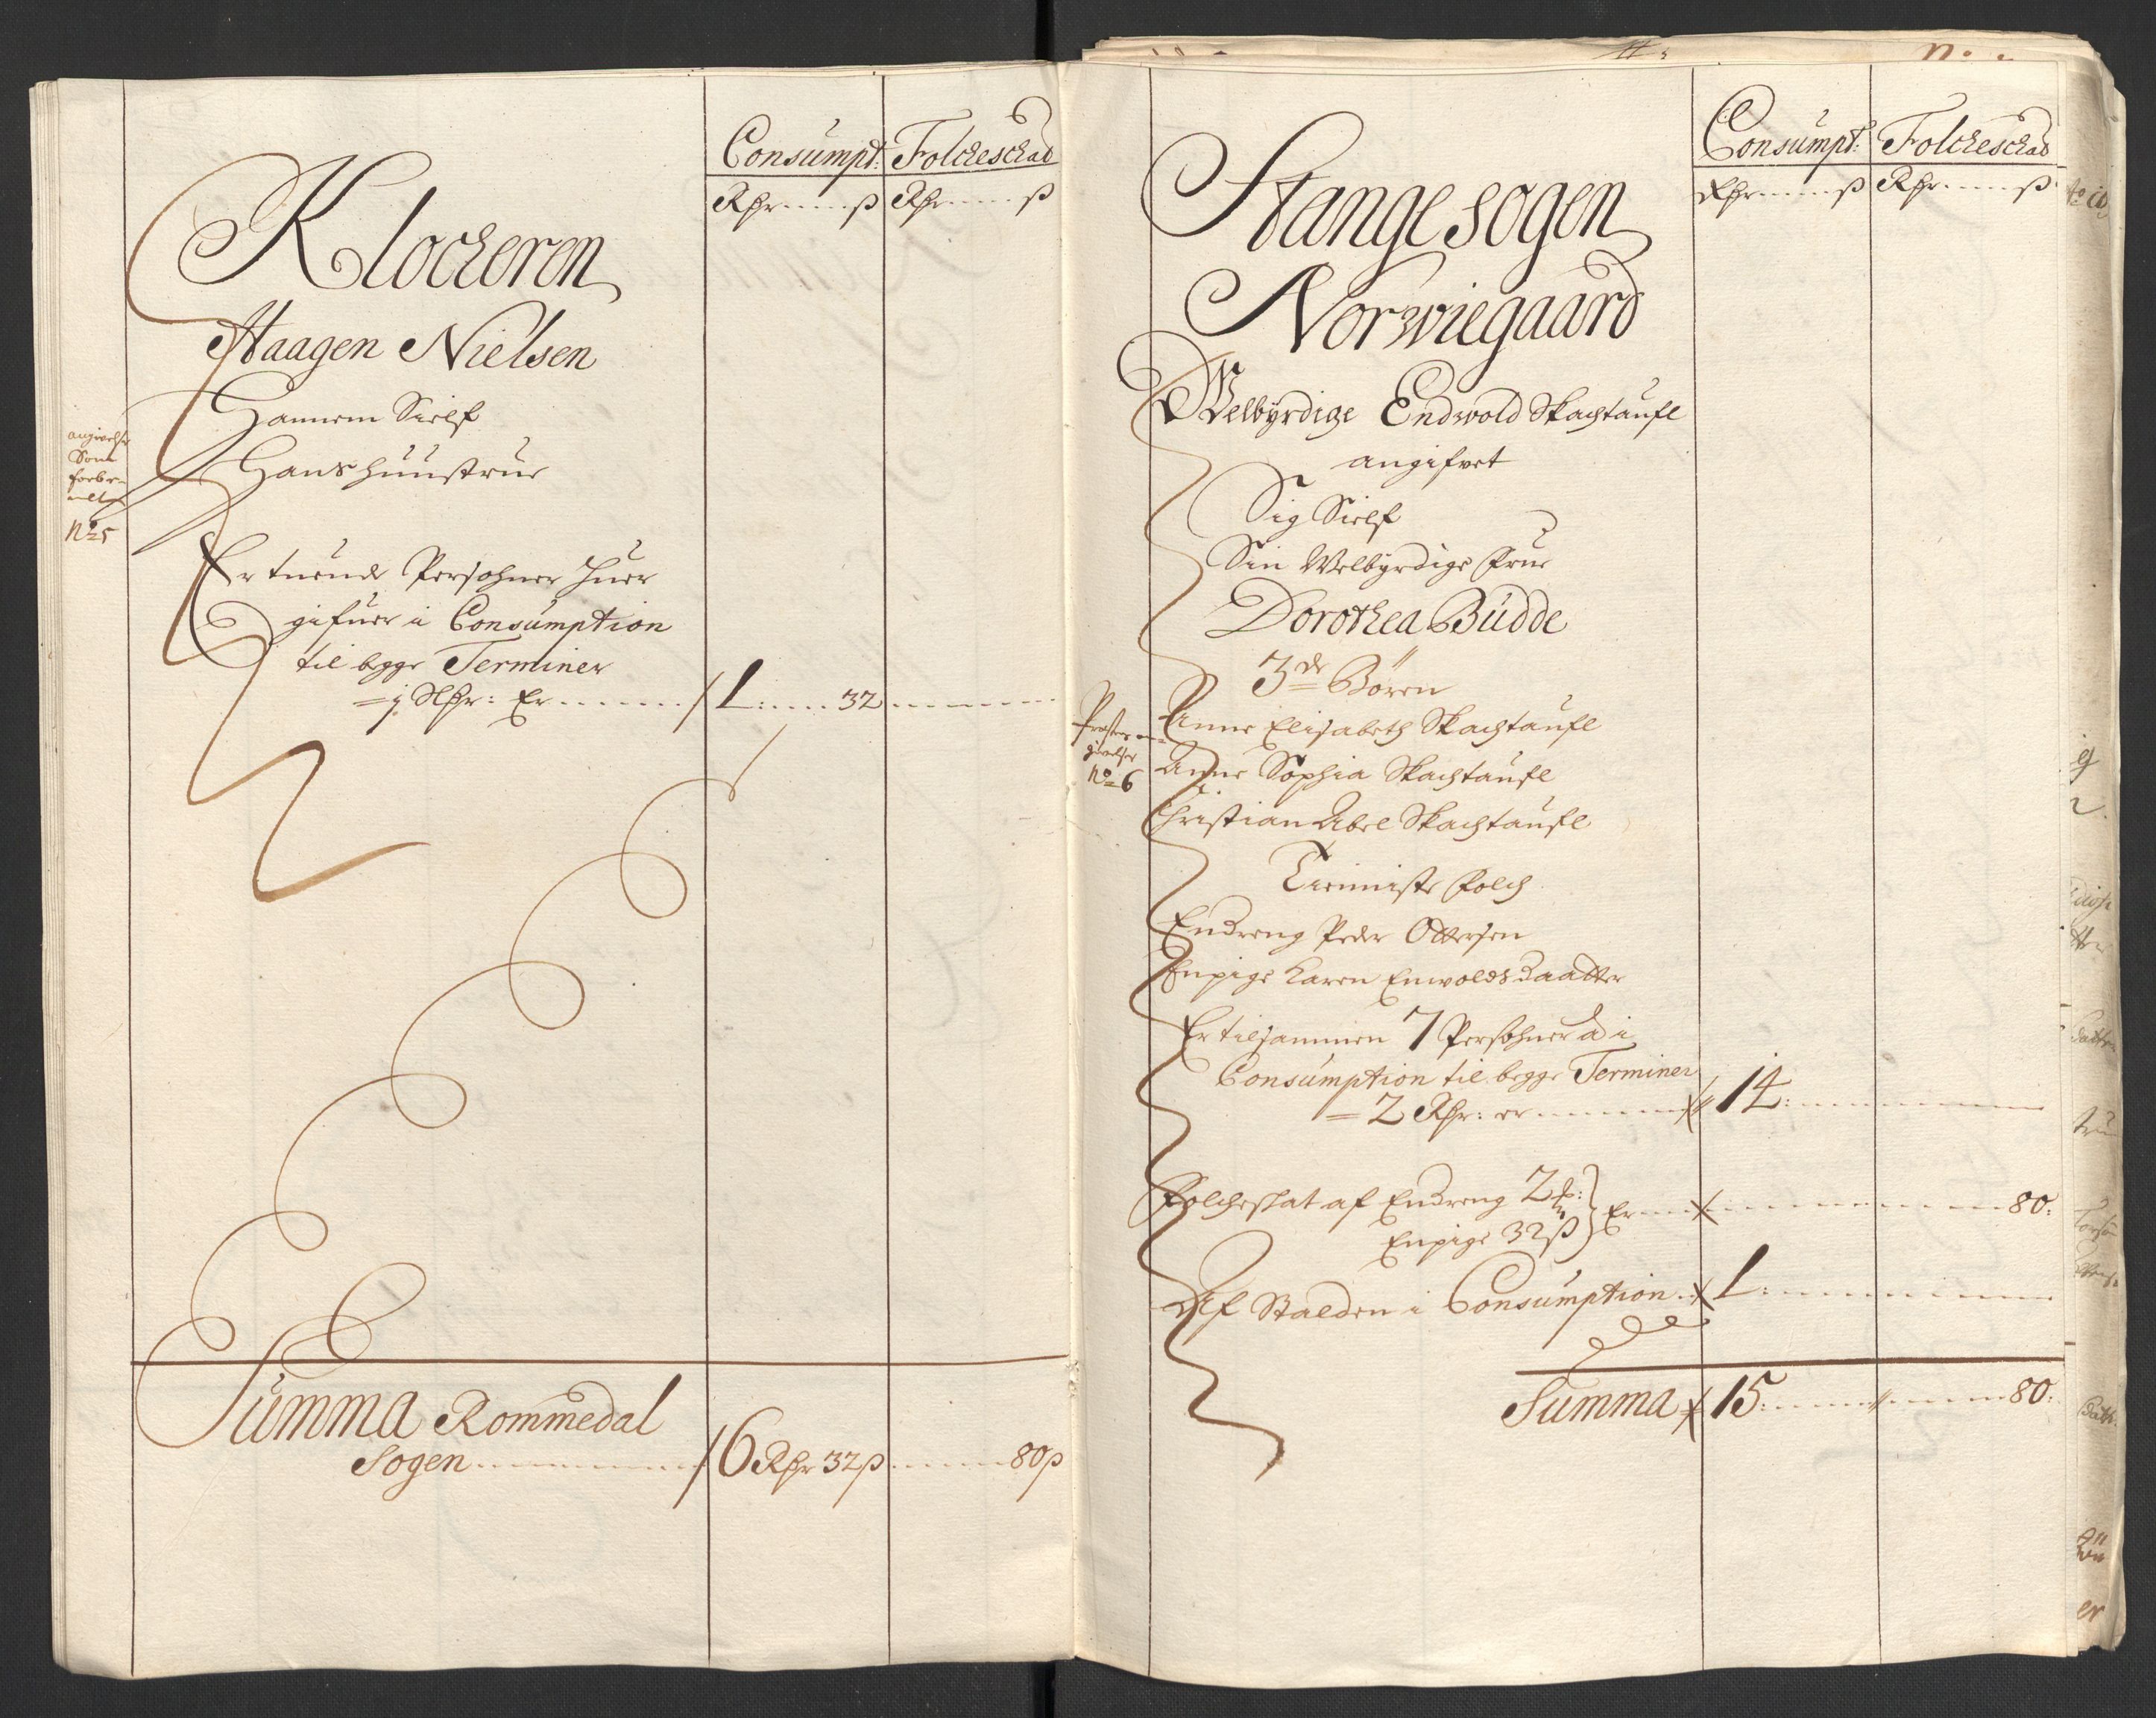 Consumpt: Folcheschat
Rdr ß Rdr ß
Klocheren
Haagen Nielsen
Hannem Sielf
Hans huustrue
angivelse
Som
No 5
Er tuende Persohner huer
gifuer i Consumption
til begge Terminer
Rdr: Er 1: 32
Summa Rommedal
Sogen 16 Rdr 32 ß 80 ß
Consumpt: Folcheschat
Rdr ß Rdr ß
Stange sogen
Norwiegaard
Welbyrdige Endwold Skachtaufl
angifvet
Sig Sielf
Sin Welbyrdige Frue
Dorothea Budde
3de Börn
Anne Elisabeth Skachtaufl
Anne Sophia Skachtaufl
Christian Abel Skachtaufl
No 6
Tienniste Folch
En dreng Peder Ottersen
En pige Karen Enwolds daatter
Er tilsammen 7 Persohner à i
Consumption til begge Terminer
= 2 Rdr: er 14:
Folcheskat af En dreng 2
En pige 32 ß Er 80:
Af Stalden i Consumption 1:
Summa 15: 80: